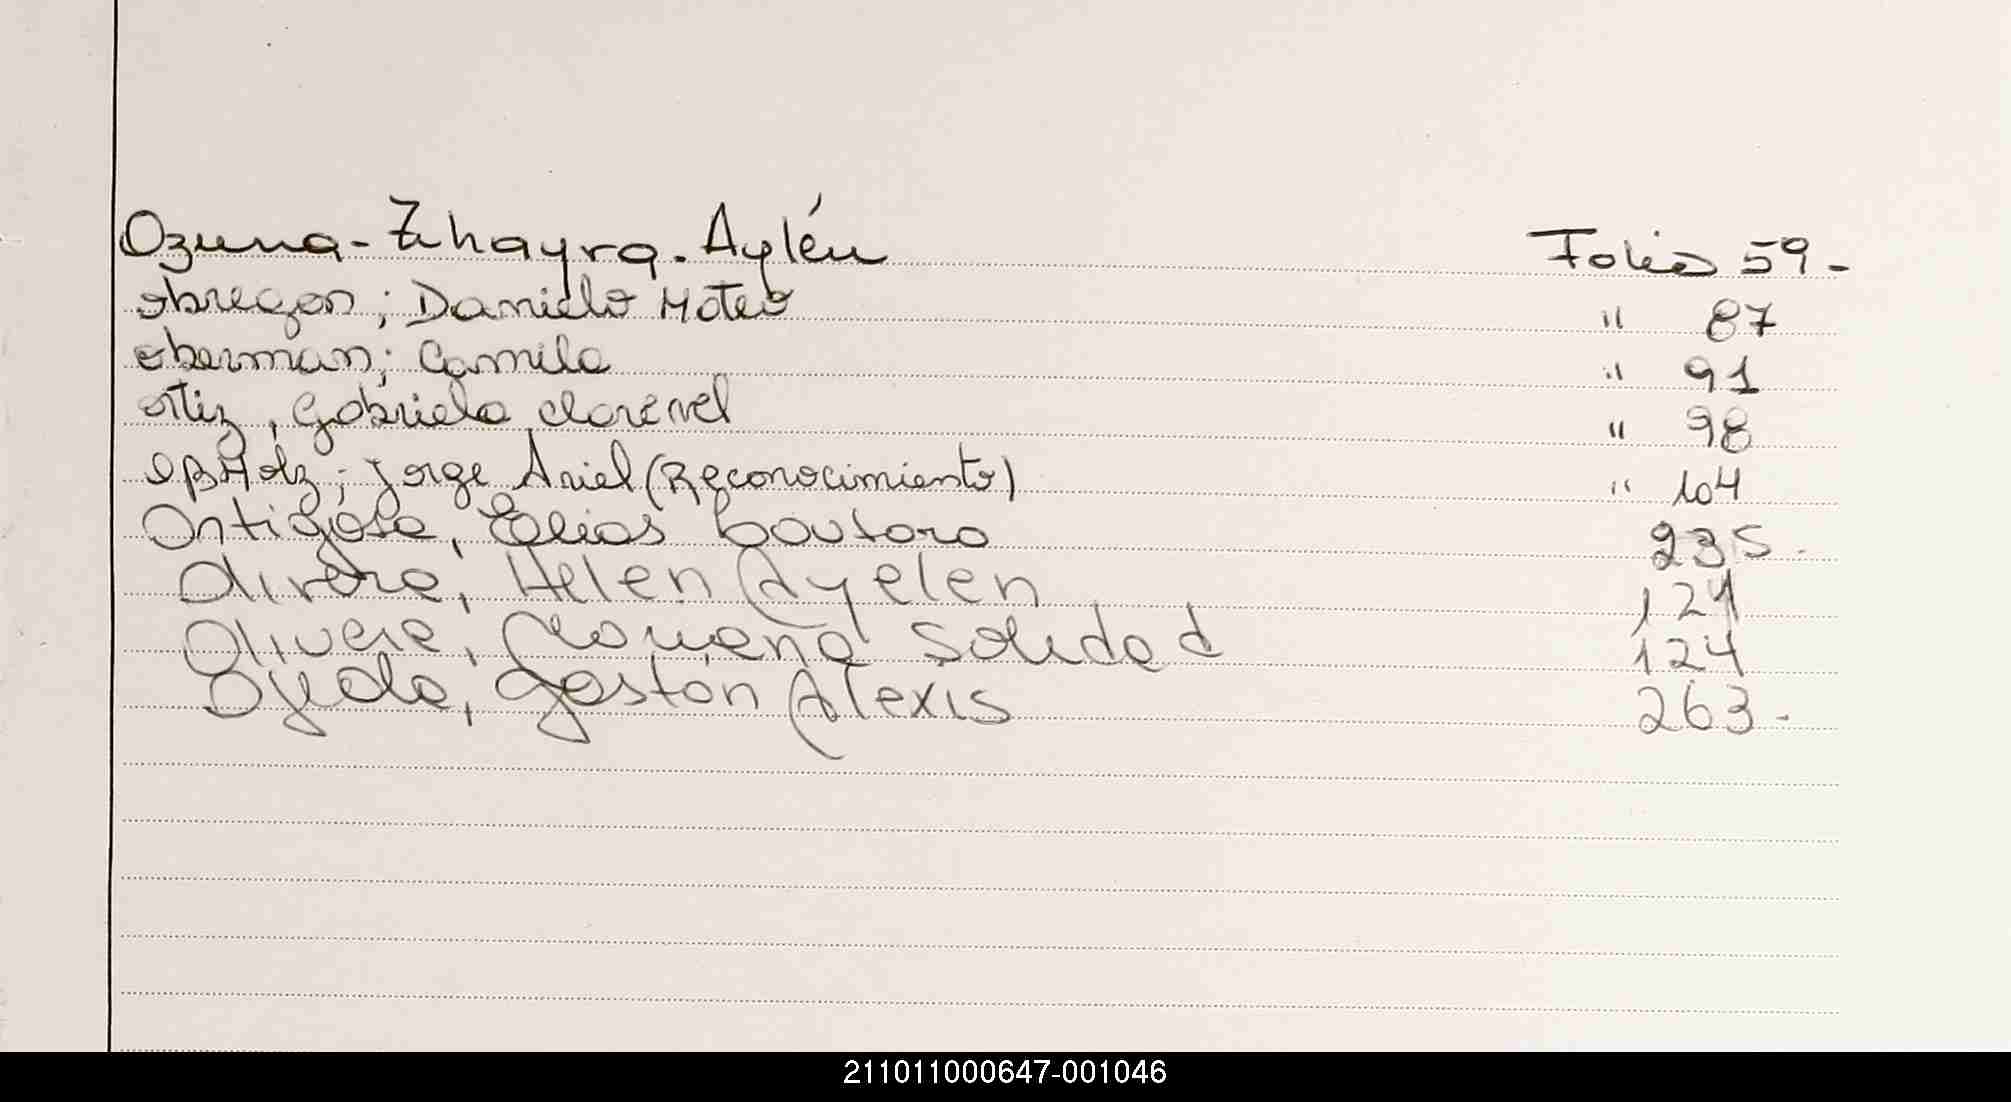 Ozuna - Zuhayra. Aylén Folio 59 -
obregon; Danielo Mateo " 87
oberman; Camila " 91
ortiz, Gabriela clarivel " 98
; Jorge Ariel (Reconocimiento) " 104
Ortigosa, Elias Lautaro 235.
Olivera, Helen Ayelen 124
Olivera, Soledad 124
Ojeda, Gaston Alexis 263.
211011000647-001046